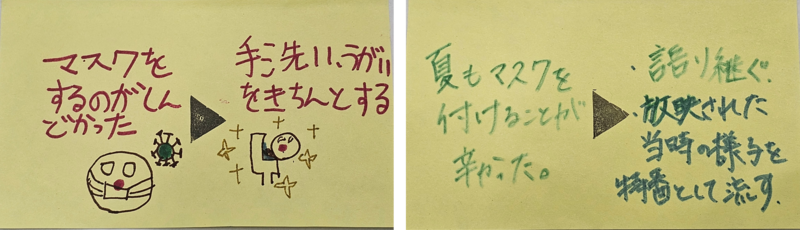 マスクを
するのがしん
どかった
手こ洗い、うがい
をきちんとする
夏もマスクを
付けることが
辛かった。
・語り継ぐ.
・放映された
当時の様子を
特番として流す.